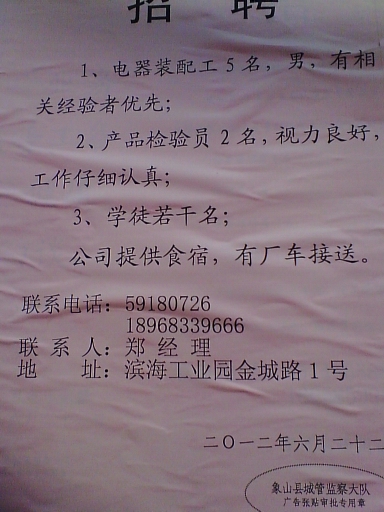 招 聘
1、电器装配工5名，男，有相
关经验者优先；
2、产品检验员2名，视力良好，
工作仔细认真；
3、学徒若干名；
公司提供食宿，有厂车接送。
联系电话：59180726
18968339666
联 系 人：郑 经 理
地 址：滨海工业园金城路1号
二〇一二年六月二十二
象山县城管监察大队
广告张贴审批专用章